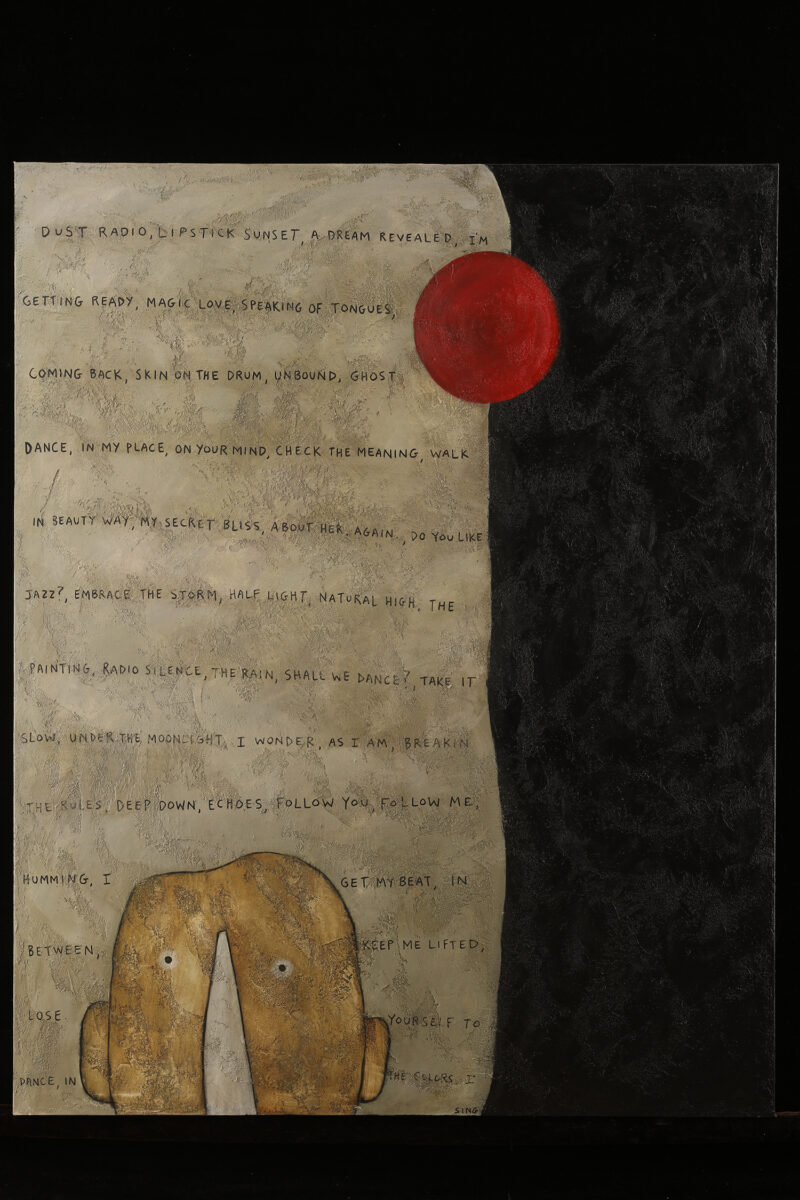 DUST RADIO, LIPSTICK SUNSET, A DREAM REVEALED, I'M
GETTING READY, MAGIC LOVE, SPEAKING OF TONGUES,
COMING BACK, SKIN ON THE DRUM, UNBOUND, GHOST
DANCE, IN MY PLACE, ON YOUR MIND, CHECK THE MEANING, WALK
IN BEAUTY WAY, MY SECRET BLISS, ABOUT HER, AGAIN.., DO YOU LIKE
JAZZ?, EMBRACE THE STORM, HALF LIGHT, NATURAL HIGH, THE
PAINTING, RADIO SILENCE, THE RAIN, SHALL WE DANCE?, TAKE IT
SLOW, UNDER THE MOONLIGHT, I WONDER, AS I AM, BREAKIN
THE RULES, DEEP DOWN, ECHOES, FOLLOW YOU, FOLLOW ME,
HUMMING, I GET MY BEAT, IN
BETWEEN, KEEP ME LIFTED,
LOSE YOURSELF TO
DANCE, IN THE COLORS, I
SING